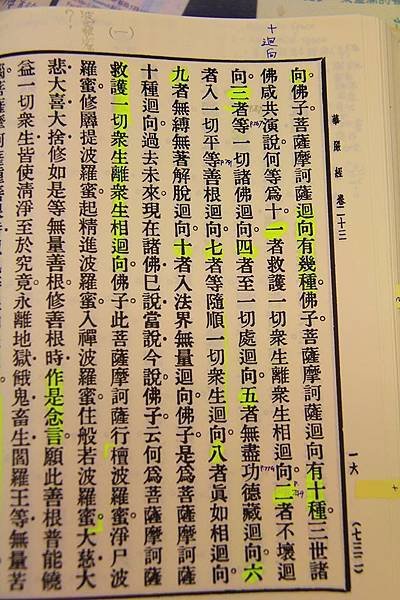 十迴向
華嚴經 卷二十三
一六 (七三二)
向。佛子菩薩摩訶薩迴向有幾種。佛子菩薩摩訶薩迴向有十種三世諸
佛咸共演說。何等為十一者救護一切衆生離衆生相迴向。二者不壞迴
向。三者等一切諸佛迴向。四者至一切處迴向。五者無盡功德藏迴向。六
者入一切平等善根迴向。七者等隨順一切衆生迴向。八者眞如相迴向。
九者無縛無著解脫迴向。十者入法界無量迴向。佛子是為菩薩摩訶薩
十種迴向過去未來現在諸佛已說當說今說。佛子云何為菩薩摩訶薩
救護一切衆生離衆生相迴向。佛子此菩薩摩訶薩行檀波羅蜜淨尸波
羅蜜修羼提波羅蜜起精進波羅蜜入禪波羅蜜住般若波羅蜜大慈大
悲大喜大捨修如是等無量善根。修善根時作是念言。願此善根普能饒
益一切衆生皆使清淨至於究竟。永離地獄餓鬼畜生閻羅王等無量苦